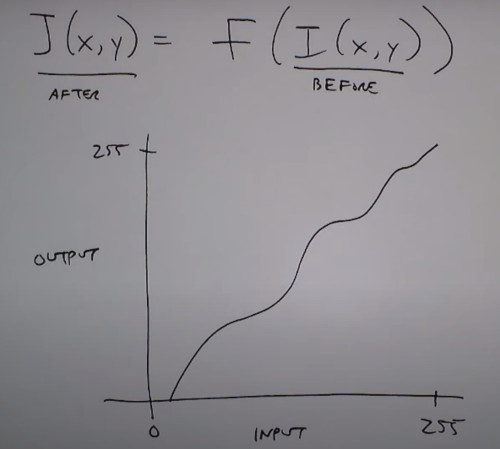 J(x,y) = F(I(x,y))
AFTER BEFORE
255
OUTPUT
0 INPUT 255